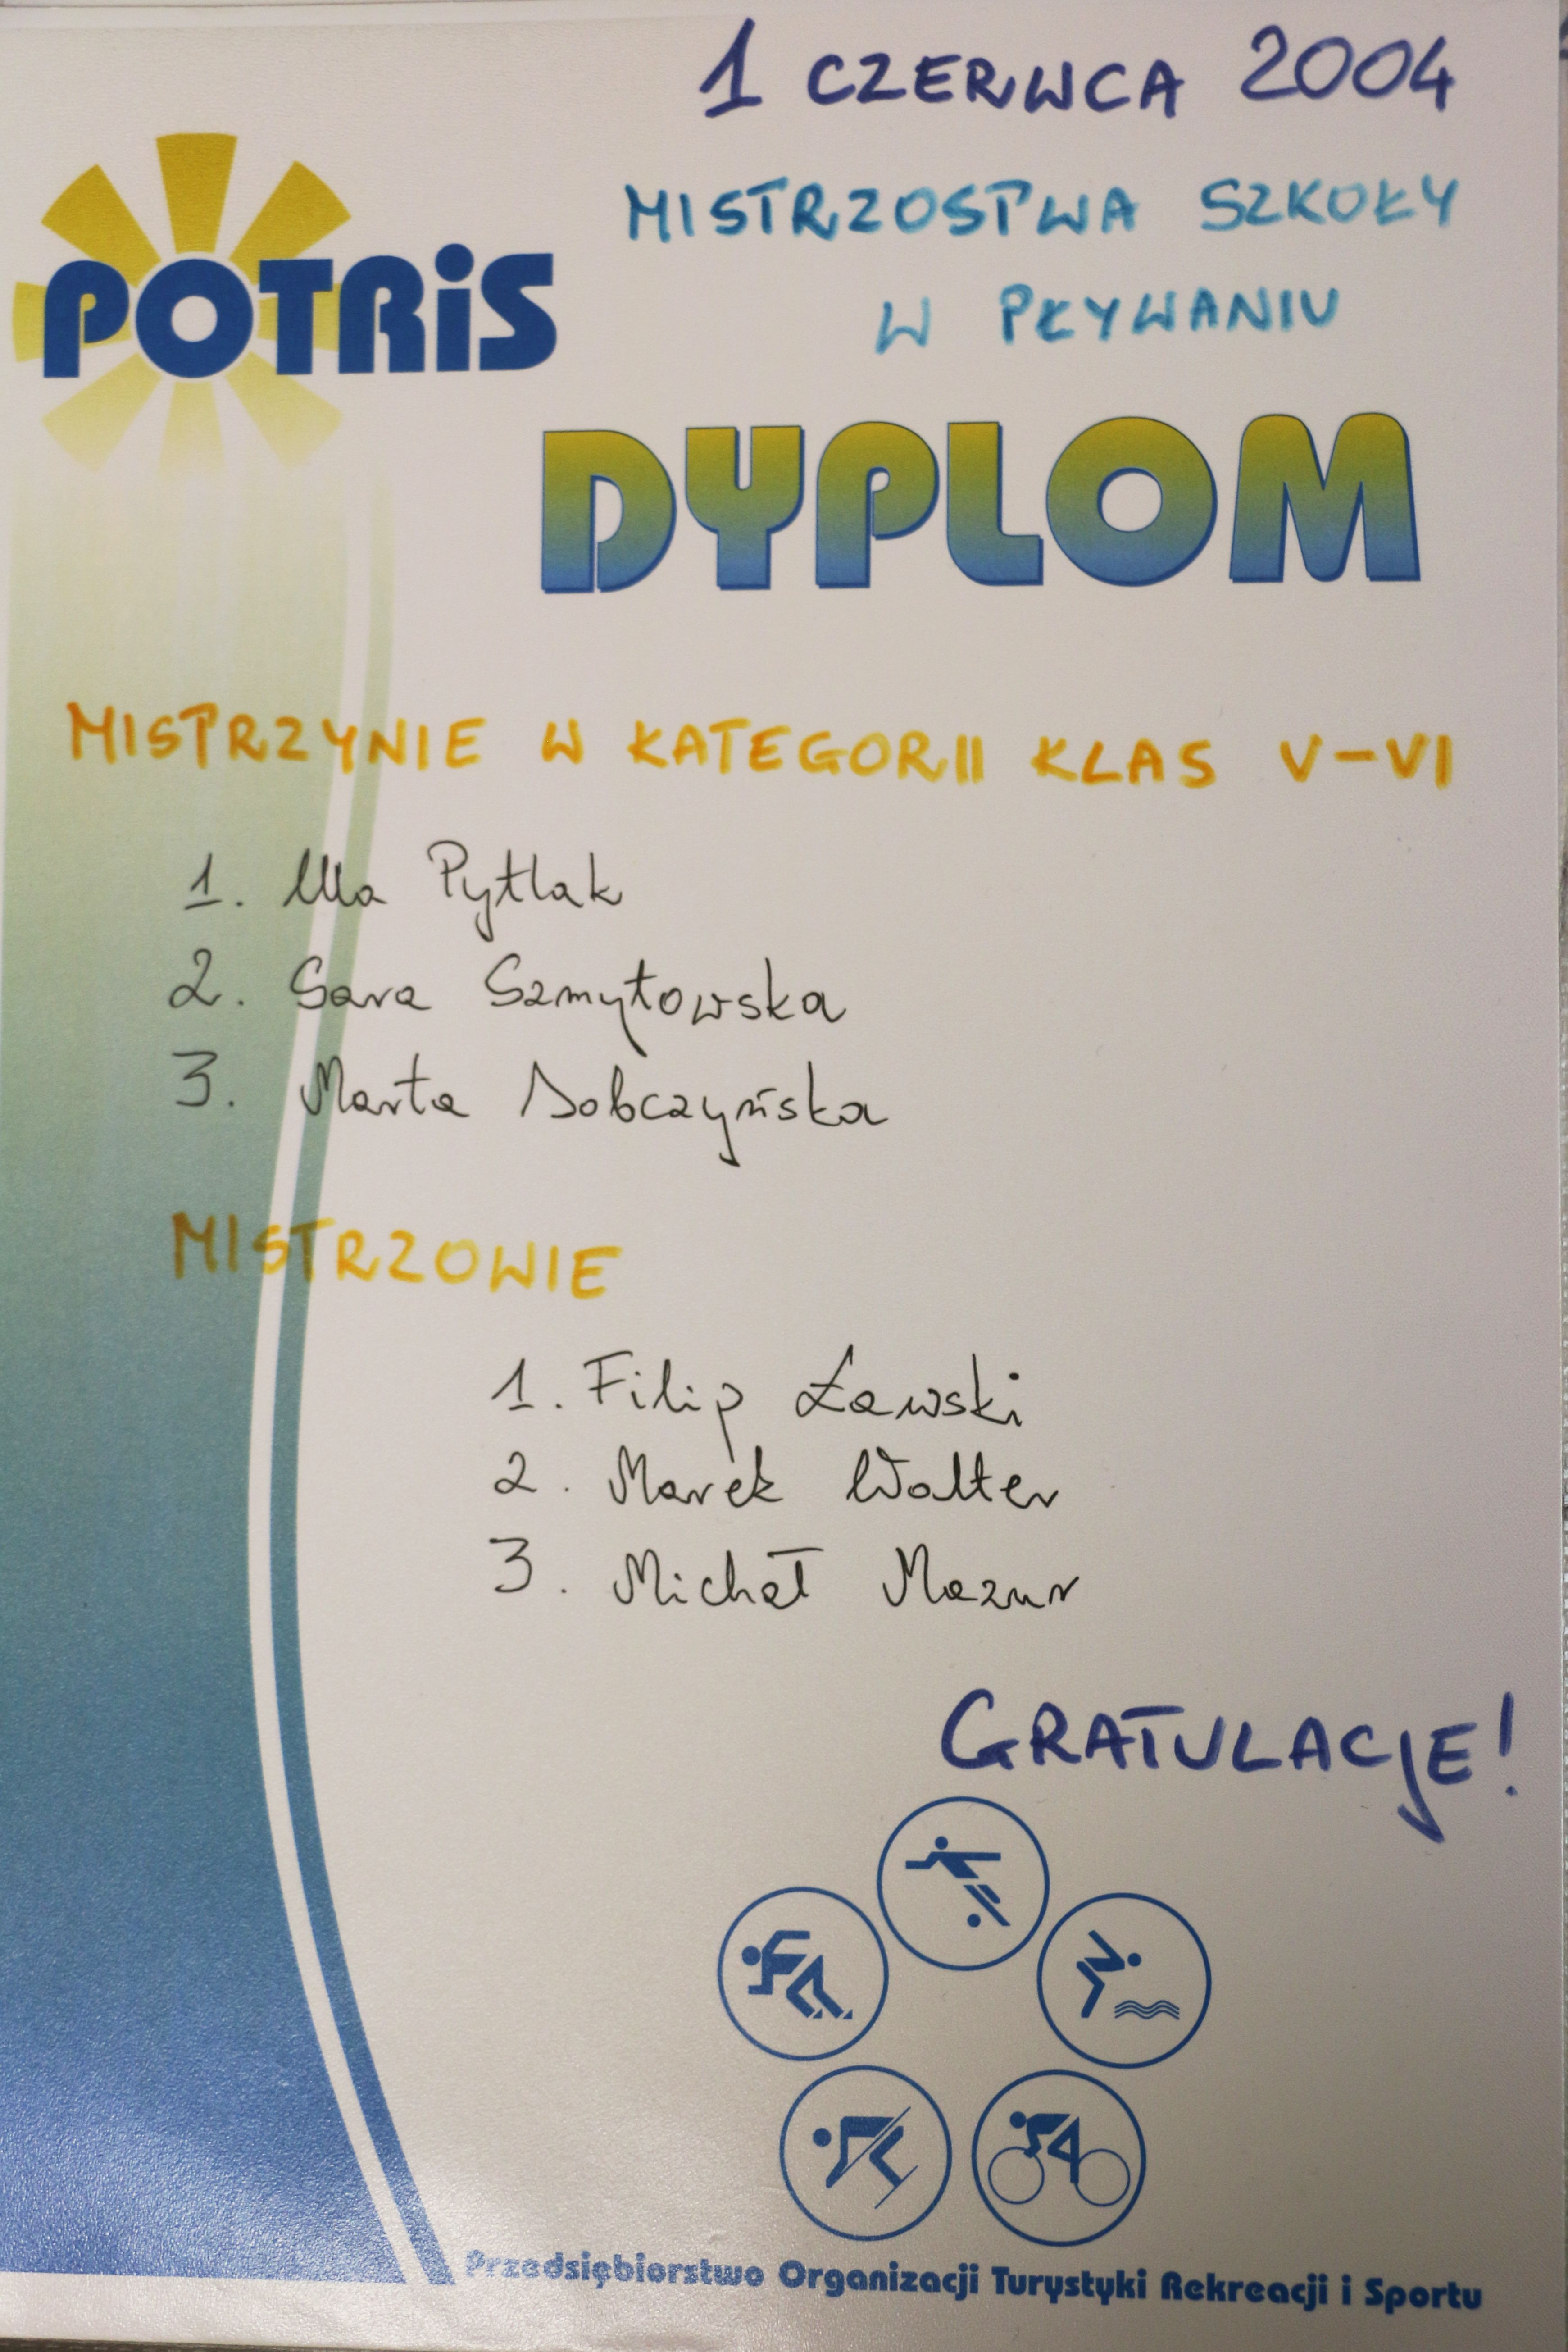 1 CZERWCA 2004
POTRiS
MISTRZOSTWA SZKOŁY
W PŁYWANIU
DYPLOM
MISTRZYNIE W KATEGORII KLAS V-VI
1. Ula Pytlak
2. Sara Szmytowska
3. Marta Dobczyńska
MISTRZOWIE
1. Filip Ławski
2. Marek Wolter
3. Michał Mazur
GRATULACJE!
Przedsiębiorstwo Organizacji Turystyki Rekreacji i Sportu